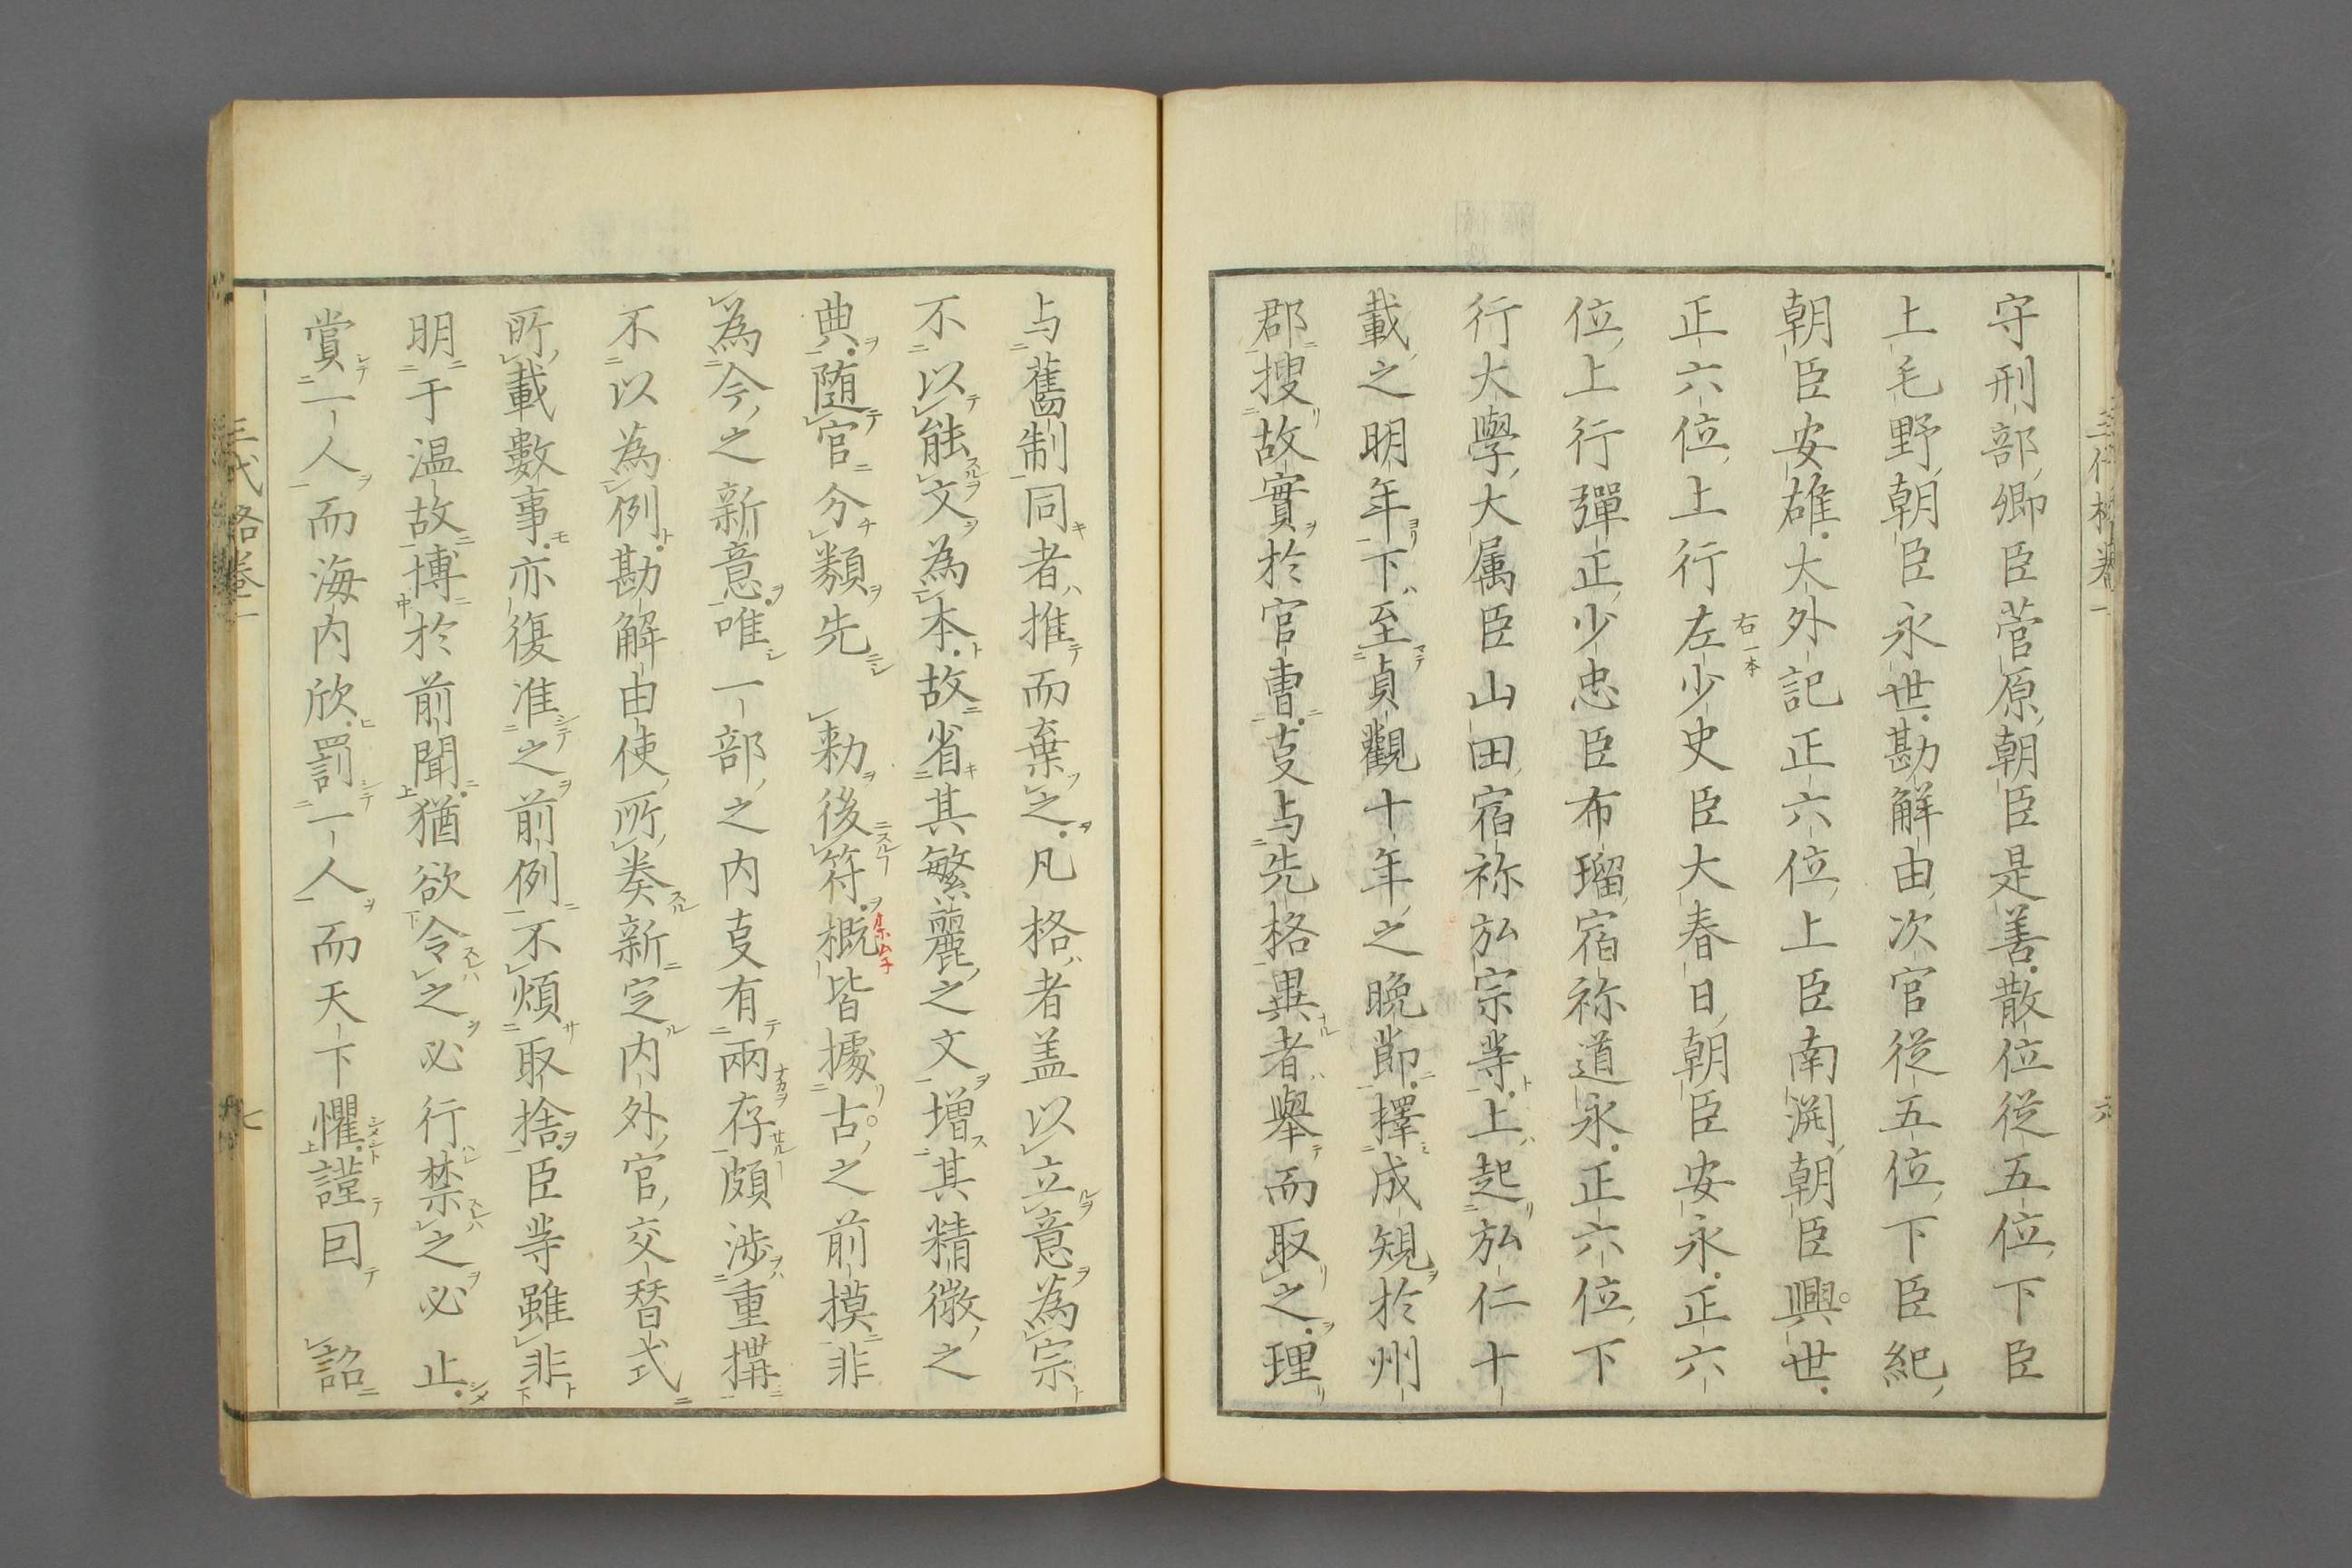 三代格卷一
六
守刑部卿臣菅原朝臣是善散位從五位下臣
上毛野朝臣永世勘解由次官從五位下臣紀
朝臣安雄大外記正六位上臣南渕朝臣興世
正六位上行左少史臣大春日朝臣安永正六
右一本
位上行彈正少忠臣布瑠宿祢道永正六位下
行大學大属臣山田宿祢弘宗等上起弘仁十
載之明年下至貞觀十年之晩節擇成規於州
郡搜故實於官曹支与先格異者舉而取之理
与舊制同者推而棄之凡格者盖以立意為宗
不以能文為本故省其繁麗之文增其精微之
典隨官分類先 勑後符概皆據古之前摸非
為今之新意唯一部之内支有兩存頗渉重搆
不以為例勘解由使所奏新定内外官交替式
所載數事亦復准之前例不煩取捨臣等雖非
明于温故博於前聞猶欲令之必行禁之必止
賞一人而海内欣罰一人而天下懼謹囙 詔
三代格卷一
七